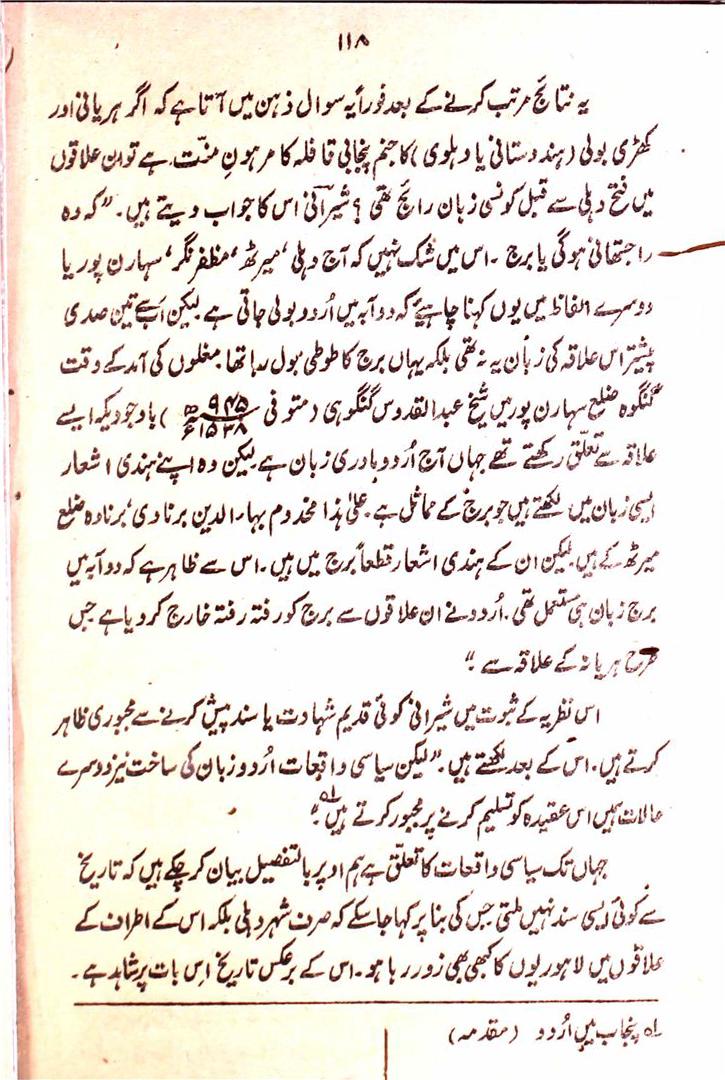 ۱۱۸
یہ نتائج مرتب کرنے کے بعد فوراً یہ سوال ذہن میں آتا ہے کہ اگر ہریانی اور
کھڑی بولی (ہندوستانی یا دہلوی) کا جنم پنجابی قافلہ کا مرہونِ منّت ہے تو ان علاقوں
میں فتح دہلی سے قبل کونسی زبان رائج تھی ؟ شیرآنی اس کا جواب دیتے ہیں۔ "کہ وہ
راجستھانی ہوگی یا برج ۔ اس میں شک نہیں کہ آج دہلی ، میرٹھ ، مظفر نگر ، سہارن پور یا
دوسرے الفاظ میں یوں کہنا چاہیے کہ دوآبہ میں اُردو بولی جاتی ہے لیکن اَب سے تین صدی
پیشتر اس علاقہ کی زبان یہ نہ تھی بلکہ یہاں برج کا طوطی بول رہا تھا۔ مغلوں کی آمد کے وقت
گنگوہ ضلع سہارن پور میں شیخ عبدالقدوس گنگوہی (متوفی ۹۴۵ھ ۱۵۳۸ء) باوجودیکہ ایسے
علاقہ سے تعلّق رکھتے تھے جہاں آج اُردو مادری زبان ہے لیکن وہ اپنے ہندی اشعار
ایسی زبان میں لکھتے ہیں جو برج کے مماثل ہے۔ علیٰ ہٰذا مخدوم بہارالدین برنادی ، برنادہ ضلع
میرٹھ کے ہیں۔ لیکن ان کے ہندی اشعار قطعاً برج میں ہیں۔ اس سے ظاہر ہے کہ دوآبہ میں
برج زبان ہی مستعمل تھی۔ اُردو نے ان علاقوں سے برج کو رفتہ رفتہ خارج کر دیا ہے جس
طرح ہریانہ کے علاقہ سے۔"
اس نظریہ کے ثبوت میں شیرانی کوئی قدیم شہادت یا سند پیش کرنے سے مجبوری ظاہر
کرتے ہیں۔ اس کے بعد لکھتے ہیں۔ "لیکن سیاسی واقعات اُردو زبان کی ساخت نیز دوسرے
حالات ہمیں اس عقیدہ کو تسلیم کرنے پر مجبور کرتے ہیں۔"لہ
جہاں تک سیاسی واقعات کا تعلّق ہے ہم اوپر بالتفصیل بیان کر چکے ہیں کہ تاریخ
سے کوئی ایسی سند نہیں ملتی جس کی بنا پر کہا جا سکے کہ صرف شہر دہلی بلکہ اس کے اطراف کے
علاقوں میں لاہوریوں کا کبھی بھی زور رہا ہو۔ اس کے برعکس تاریخ اِس بات پر شاہد ہے۔
لہ پنجاب میں اُردو (مقدمہ)